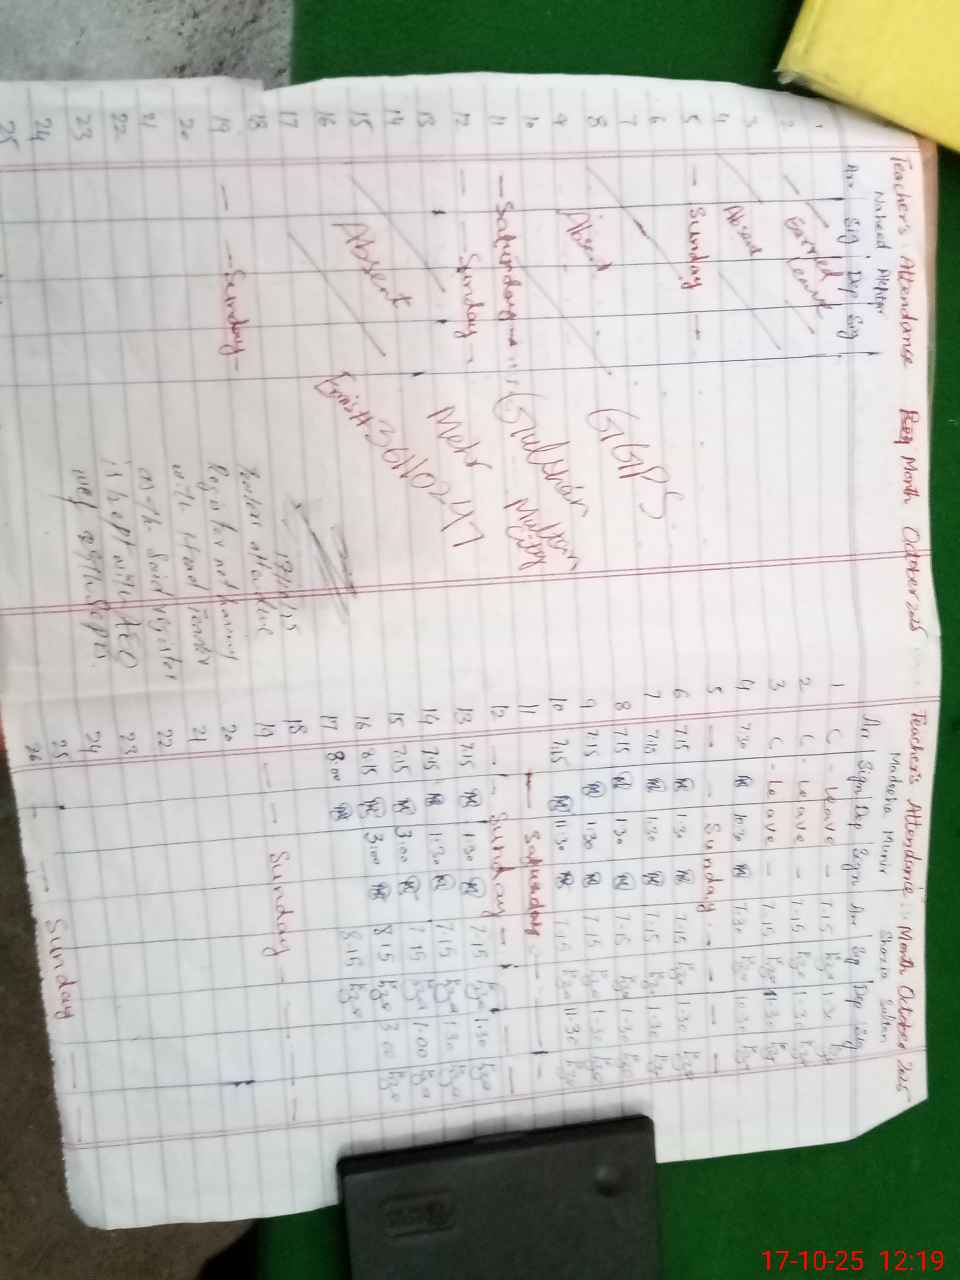 Teacher's Attendance Reg Month October 2025
Naheed Akhter
Arr Sig Dep Sig
1
2 Earned Leave
3
4 Absent
5 — Sunday —
6
7
8 Absent
9
10
11 — Saturday —
12 — Sunday -
13
14
15 Absent
16
17
18
19 — Sunday -
20
21
22
23
24
25
GGPS
Gulshan
Mehr
Multan
City
Emis# 36110247
17/10/25
attendance
Register not having
with Head Teacher
as the said register
is kept with AEO
Teacher's Attendance. Month October 2025
Madeeha Munir Shazia Sultan
Arr Sign Dep Sign Arr Sig Dep Sig
1 L - Leave - 7.15 1.30
2 L - Leave - 7.15 1.30
3 L - Leave - 7.15 11.30
4 7.30 10.30 7.30 10.30
5 — - Sunday - - —
6 7.15 1.30 7.15 1.30
7 7.15 1.30 7.15 1.30
8 7.15 1.30 7.15 1.30
9 7.15 1.30 7.15 1.30
10 7.15 11.30 7.15 11.30
11 — Saturday - - -
12 — - Sunday — - —
13 7.15 1.30 7.15 1.30
14 7.15 1.30 7.15 1.30
15 7.15 3:00 7.15 1.00
16 8.15 3:00 8.15 3.00
17 8.00 8.15
18
19 — - Sunday - - —
20
21
22
23
24
25
26 - — Sunday — —